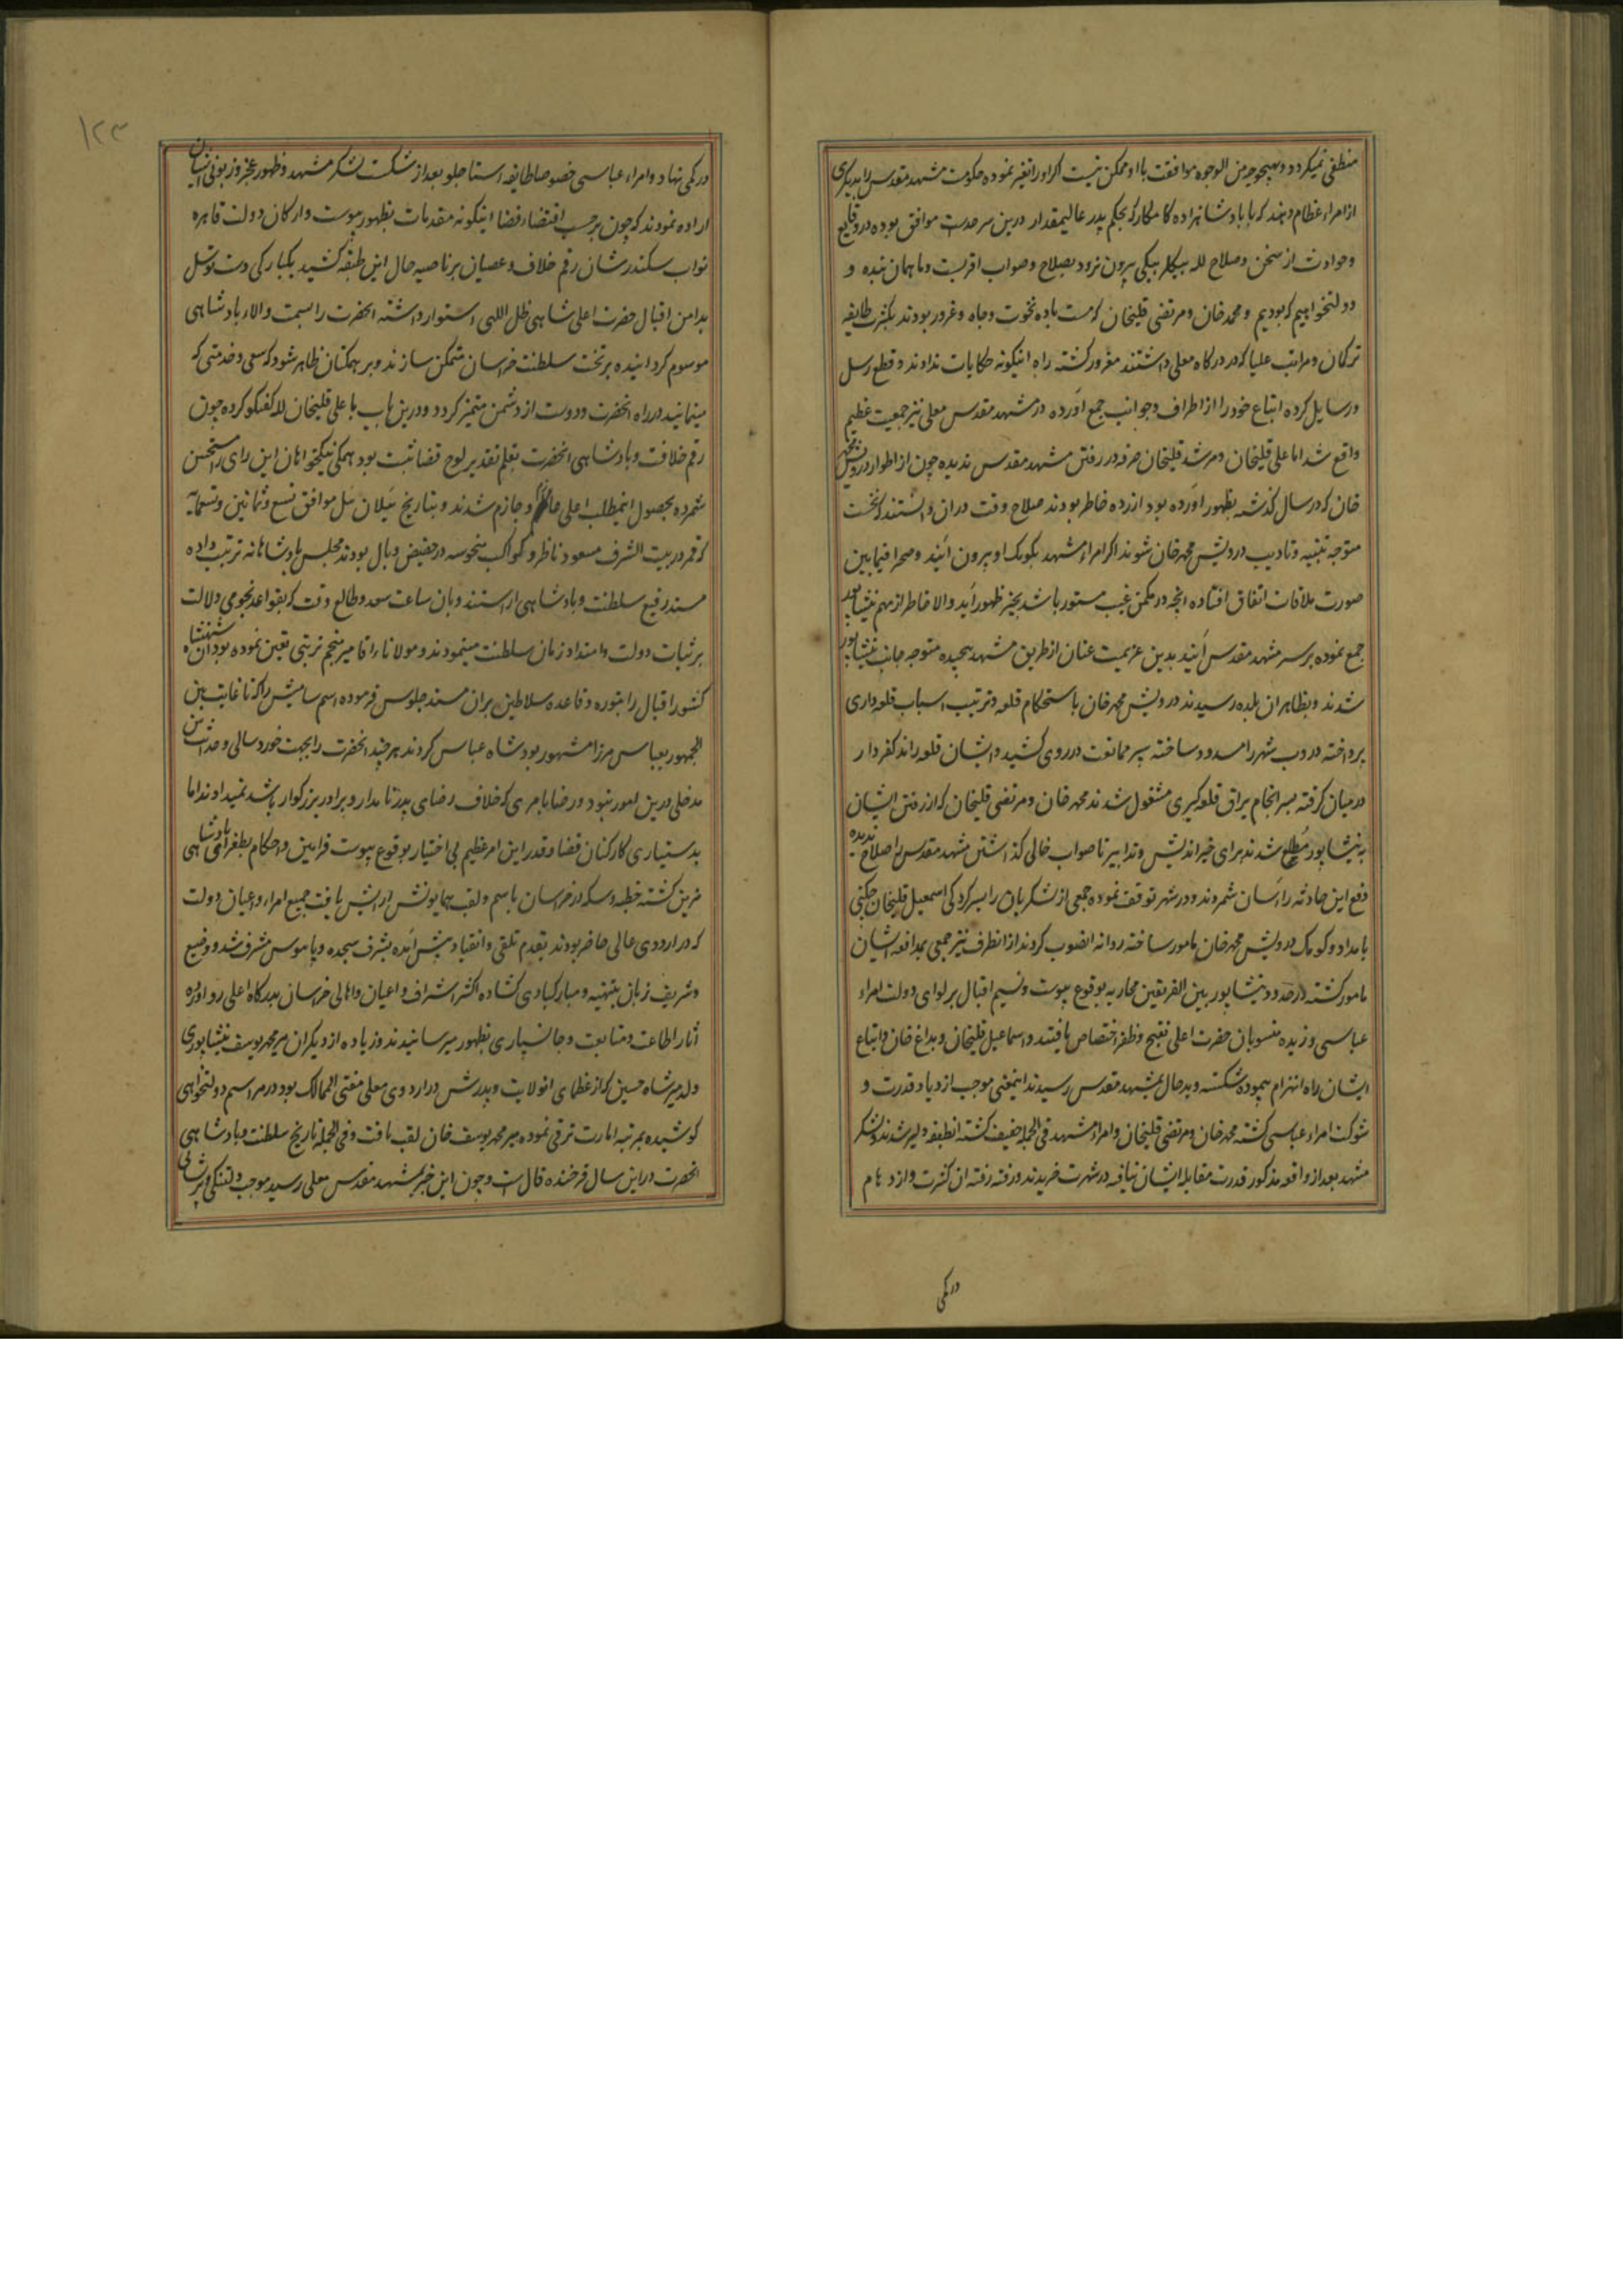 منطفی نمیکردد و بهیچوجه من الوجوه موافقت با او ممکن نیست اکر او را تغیر نموده حکومت مشهد مقدس را بدیکری
از امراء عظام دهند که با پادشاهزاده کامکار که بحکم پدر عالیمقدار درین سرحدست موافق بوده در وقایع
و حوادث از سخن و صلاح لله بیکلر بیکی بیرون نرود بصلاح و صواب اقربست و ما همان بنده و
دولتخواهیم که بودیم و محمد خان و مرتضی قلیخان که مست باده نخوت و جاه و غرور بودند بکثرت طایفه
ترکمان و مراتب علیا که در درکاه معلی داشتند مغرور کشته راه اینکونه حکایات ندادند و قطع رسل
و رسایل کرده اتباع خود را از اطراف و جوانب جمع آورده در مشهد مقدس معلی نیز جمعیت عظیم
واقع شد اما علی قلیخان و مرشد قلیخان صرفه در رفتن مشهد مقدس ندیده چون از اطوار درویش محمد
خان که در سال کذشته بظهور آورده بود ازرده خاطر بودند صلاح وقت در ان دانستند که نخست
متوجه تنبیه و تادیب درویش محمد خان شوند اکر امراء مشهد بکومک او بیرون آیند و صحرا فیمابین
صورت ملاقات اتفاق افتاده انچه در مکمن غیب مستور باشد بحیز ظهور آید والا خاطر از مهم نیشابور
جمع نموده بر سر مشهد مقدس آیند بدین عزیمت عنان از طریق مشهد پیچیده متوجه جانب نیشابور
شدند و بظاهر ان بلده رسیدند درویش محمد خان باستحکام قلعه و ترتیب اسباب قلعه داری
پرداخته دروب شهر را مسدود ساخته سپر ممانعت در روی کشید و ایشان قلعه را
در میان کرفته بسرانجام یراق قلعه کیری مشغول شدند محمد خان و مرتضی قلیخان که از رفتن ایشان
به نیشابور مطلع شدند برای خیراندیش و تدابیر ناصواب خالی کذاشتن مشهد مقدس را صلاح ندیده
دفع این حادثه را آسان شمردند و در شهر توقف نموده جمعی از لشکریان را بسرکردکی اسمعیل قلیخان چکنی
بامداد و کومک درویش محمد خان مامور ساخته روانه انصوب کردند از انطرف نیز جمعی بمدافعه ایشان
مامور کشته در حدود نیشابور بین الفریقین محاربه بوقوع پیوست و نسیم اقبال بر لوای دولت امراء
عباسی وزیده منسوبان حضرت اعلی بفتح و ظفر اختصاص یافتند و اسماعیل قلیخان و بداغ خان و اتباع
ایشان راه انهزام پیموده شکسته و بدحال بمشهد مقدس رسیدند اینمعنی موجب ازدیاد قدرت و
شوکت امراء عباسی کشته محمد خان و مرتضی قلیخان و امراء مشهد فی الجمله خفیف کشته انطبقه دلیر شدند و لشکر
مشهد بعد از واقعه مذکور قدرت مقابله ایشان نیافته در شهرت خریدند و رفته رفته ان کثرت و ازدحام
در کمی
۱۲۳
در کمی نهاد و امراء عباسی خصوصا طایفه استاجلو بعد از شکست لشکر مشهد و ظهور عجز و زبونی ایشان
اراده نمودند که چون برحسب اقتضاء قضا اینکونه مقدمات بظهور پیوست و ارکان دولت قاهره
نواب سکندر شان رقم خلاف و عصیان بر ناصیه حال این طبقه کشید یکبارکی دست توسل
بدامن اقبال حضرت اعلی شاهی ظل اللهی استوار داشته انحضرت را بسمت والاء پادشاهی
موسوم کردانیده بر تخت سلطنت خراسان متمکن سازند و بر همکنان ظاهر شود که سعی و خدمتی که
مینمایند در راه انحضرت و دوست از دشمن متمیز کردد و درین باب با علی قلیخان لله کفتکو کرده چون
رقم خلافت و پادشاهی انحضرت بقلم تقدیر لوح قضا ثبت بود همکی نیکخواهان این رای را مستحسن
شمرده بحصول اینمطلب اعلی عازم و جازم شدند و بتاریخ ییلان ئیل موافق تسع و ثمانین و تسعمایه
که قمر در بیت الشرف مسعود ناظر و کواکب منحوسه در حضیض وبال بودند مجلس پادشاهانه ترتیب داده
مسند رفیع سلطنت و پادشاهی اراستند و بان ساعت سعد و طالع وقت که بقواعد نجومی دلالت
بر ثبات دولت و امتداد زمان سلطنت مینمودند و مولانا اقا میر منجم تربتی تعین نموده بود ان شهنشاه
کشور اقبال را بتوره و قاعده سلاطین بران مسند جلوس فرموده اسم سامیش را که تا غایت بین
الجمهور بعباس میرزا مشهور بود شاه عباس کردند هر چند انحضرت را بجهت خورد سالی و حداثت سن
مدخلی درین امور نبود و رضا بامری که خلاف رضای پدر نامدار و برادر بزرکوار باشد نمیدادند اما
بدستیاری کارکنان قضا و قدر این امر عظیم بی اختیار بوقوع پیوست فرامین و احکام بطغرای پادشاهی
مزین کشته خطبه و سکه در خراسان باسم و لقب همایونش ارایش یافت جمیع امراء و اعیان دولت
که در اردوی عالی حاضر بودند بقدم تلقی و انقیاد پیش آمده بشرف سجده و پابوس مشرف شد و وضیع
و شریف زبان بتهنیه و مبارکبادی کشاده اکثر اشراف و اعیان و اهالی خراسان بدرکاه اعلی رو اورده
اثار اطاعت و متابعت و جانسپاری بظهور میرسانیدند و زیاده از دیکران میر محمد یوسف نیشابوری
ولد میر شاه حسین که از عظمای انولایت و پدرش در اردوی معلی مفتی الممالک بود در مراسم دولتخواهی
کوشیده بمرتبه امارت ترقی نموده میر محمد یوسف خان لقب یافت و فی الجمله تاریخ سلطنت و پادشاهی
انحضرت در این سال فرخنده فال است و چون این خبر بمشهد مقدس معلی رسید موجب دلتنکی و پریشانی